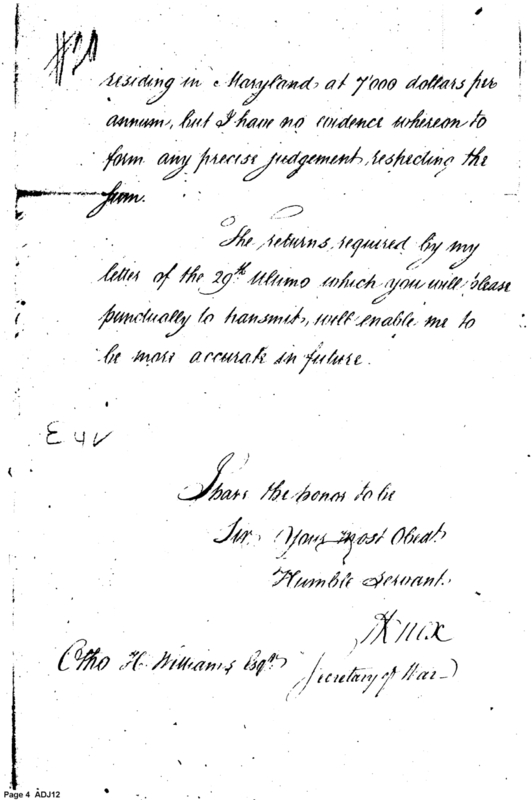 residing in Maryland at 7'000 dollars per
annum, but I have no evidence whereon to
form any precise judgement, respecting the
sum.
The returns, required by my
letter of the 29th Ultimo which you will please
punctually to transmit, will enable me to
be more accurate in future.
I have the honor to be
Sir Your most Obedt
Humble Servant
HKnox
Secretary of War
Otho H. Williams Esqr
Page 4 ADJ12